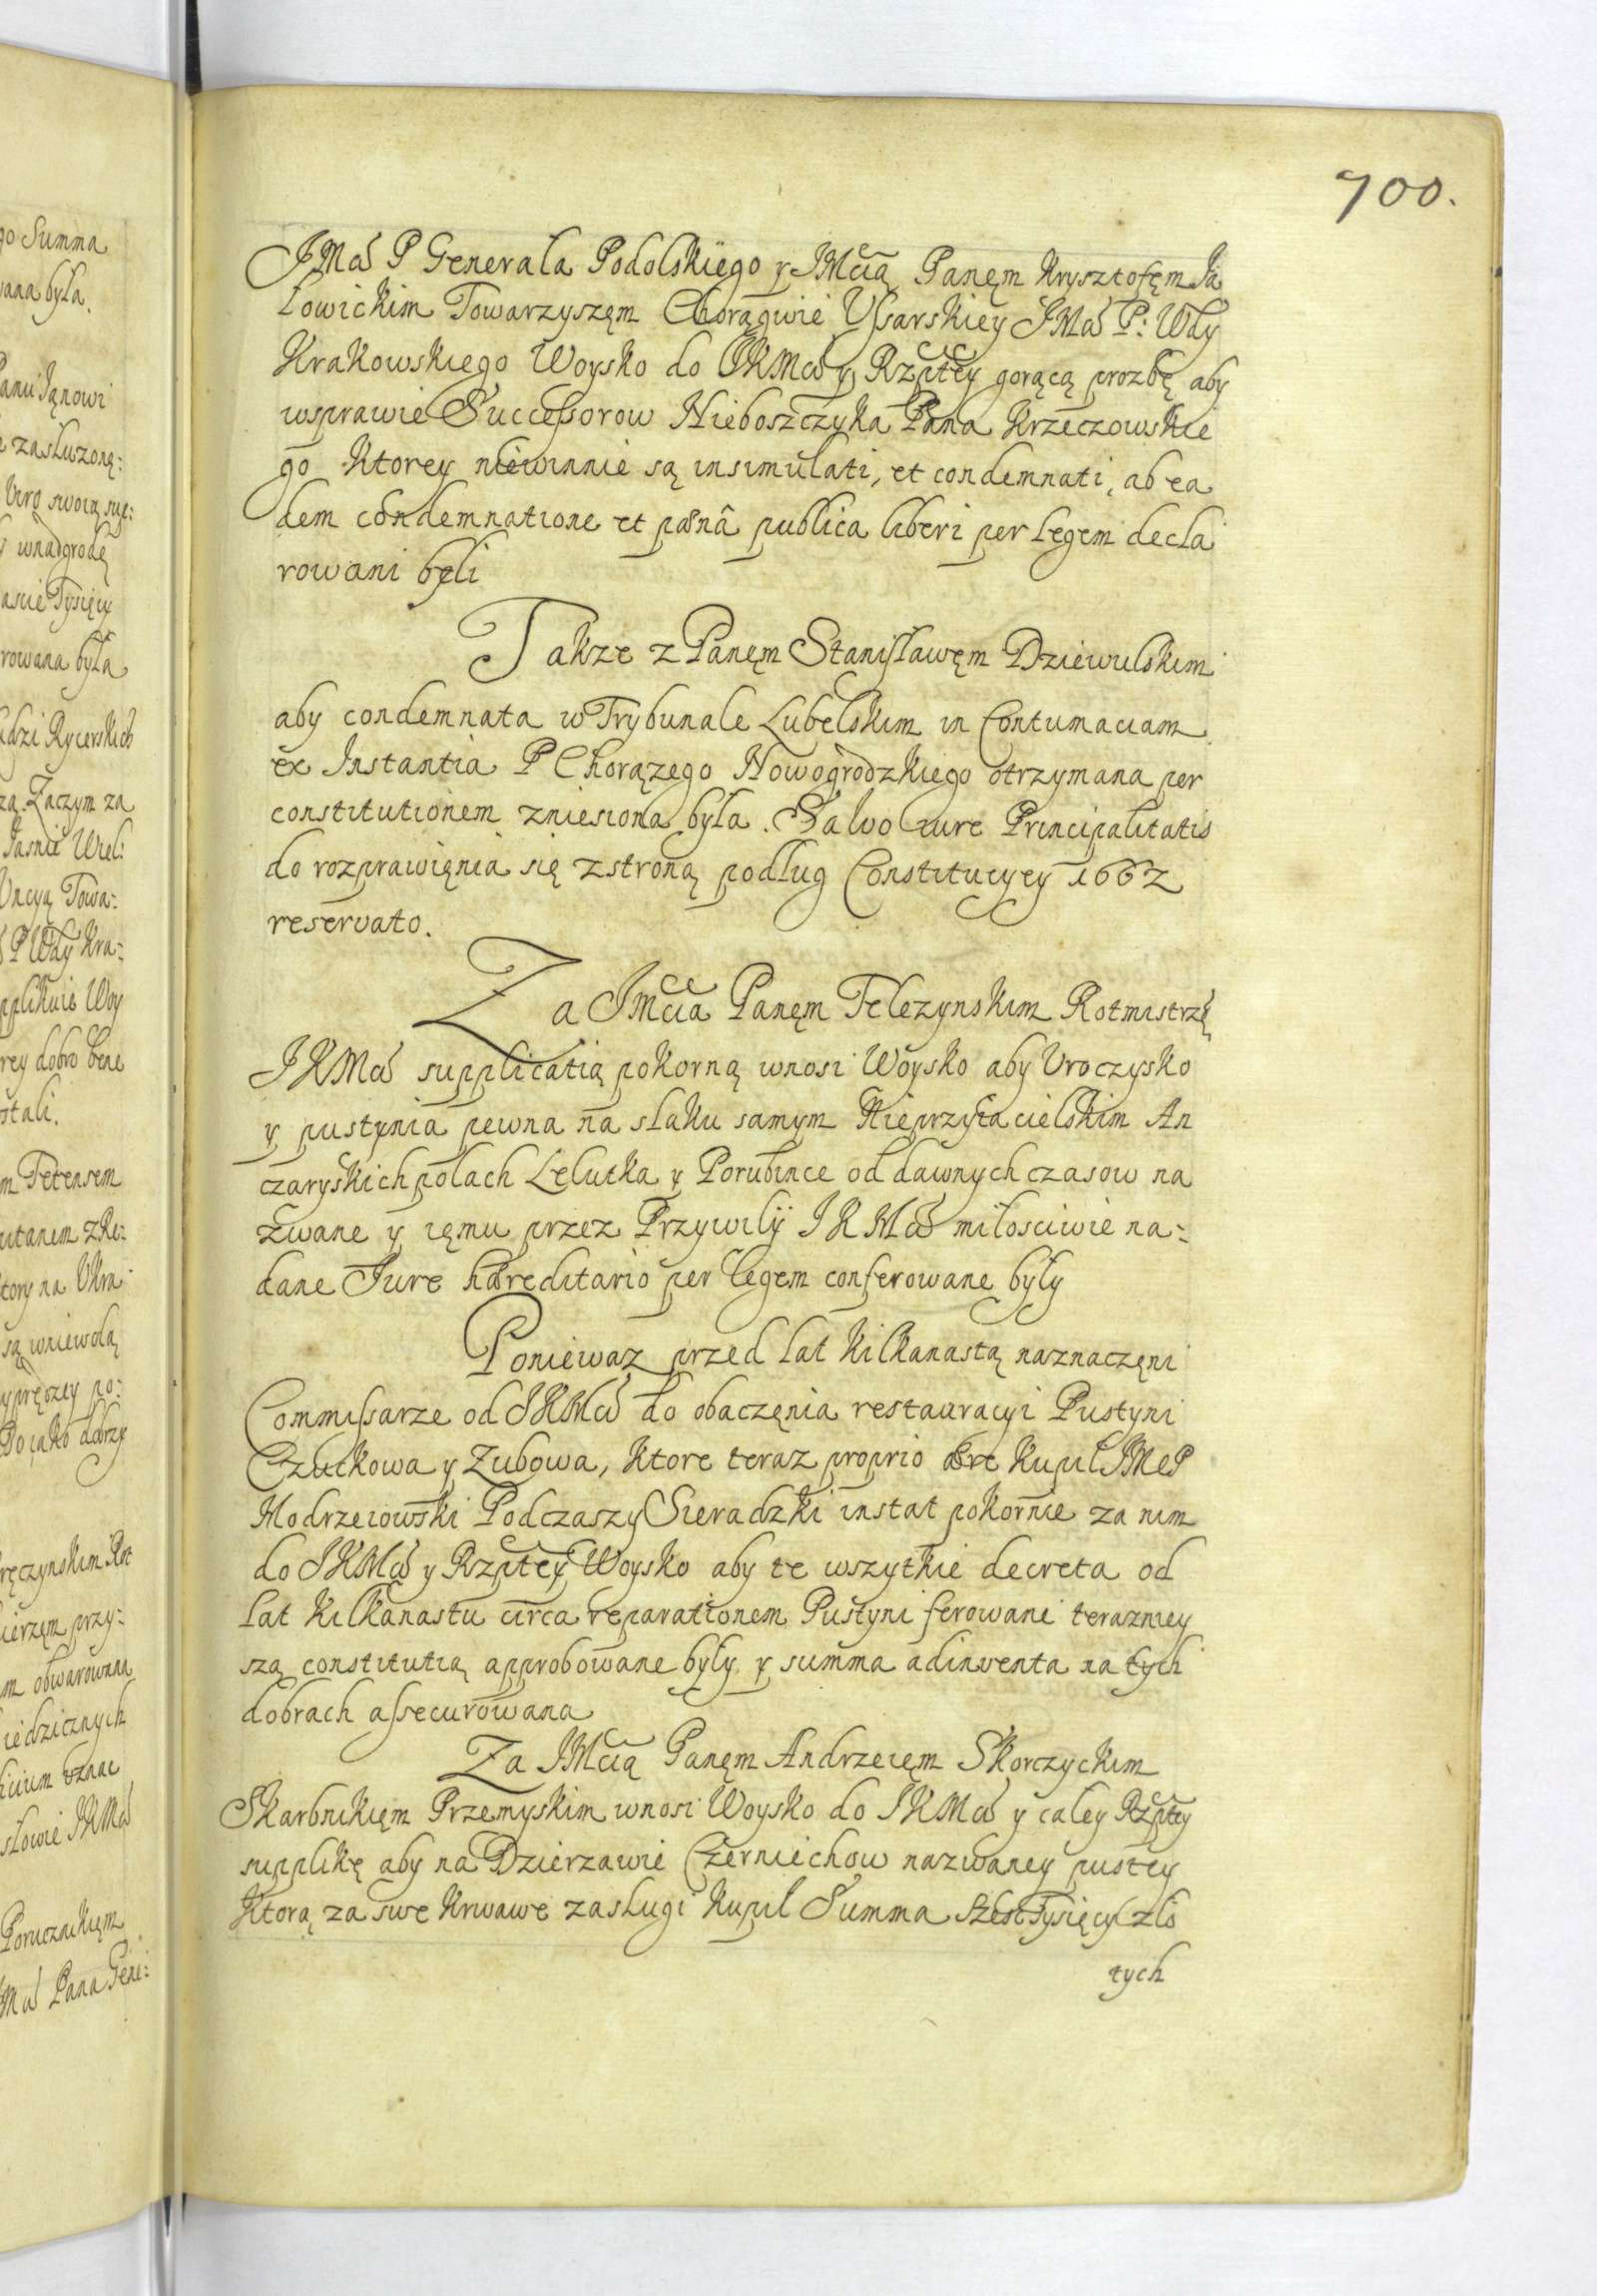 go Summa
wana była.
Panu Janowi
zasłuzoną:
swoią
wnadgrodę
Tysięcy
rowana była
Rycerskich
Zaczym za
Jasnie Wiel:
Towa:
P Wdy Kra:
Woy
rey dobro bene
stali.
ktory na Ukra
są wniewolą
po:
iako dobrze
Rot
przy:
obwarowana
iedzicznych
słowie JKMci
Porucznikięm
Pana Gene:
700.
JMci P Generała Podolskiego y JMcią Panęm Krysztofęm Ja
łowickim Towarzyszęm Chorągwie Ussarskiey JMci P: Wdy
Krakowskiego Woysko do JKMci y Rzptey gorącą prozbę aby
wsprawie Successorow Nieboszczyka Pana Krzeczowskie
go Ktorey niewinnie są insimulati, et condemnati, ab ea
dem condemnatione et pænâ publica liberi per legem decla
rowani byli
Takze z Panęm Stanisławęm Dziewulskim
aby condemnata w Trybunale Lubelskim in Contumaciam
ex Instantia P Chorązego Nowogrodzkiego otrzymana per
constitutionem zniesiona była. Salvo iure Principalitatis
do rozprawięnia się zstroną podług Constitucyey 1662
reservato.
Za JMcia Panęm Telezynskim Rotmistrzę
JKMci supplicatią pokorną wnosi Woysko aby Vroczysko
y pustynia pewna na slaku samym Nieprzyiacielskim An
czaryskich polach Lelutka y Porubince od dawnych czasow na
zwane y ięmu przez Przywilij JKMci miłosciwie na=
dane Jure hæreditario per legem conferowane były
Poniewaz przed lat Kilkanastą naznaczęni
Commissarze od JKMci do obaczęnia restauracyi Pustyni
Czutkowa y Zubowa, Ktore teraz proprio ære Kupił JMcP
Modrzeiowski Podczaszy Sieradzki instat pokornie za nim
do JKMci y Rzptey Woysko aby te wszytkie decreta od
lat Kilkanastu circa reparationem Pustyni ferowane terazniey
szą constitutią approbowane były y summa adinventa na tych
dobrach assecurowana
Za JMcią Panęm Andrzeięm Skorczyckim
Skarbnikięm Przemyskim wnosi Woysko do JKMci y całey Rzptey
supplikę aby na Dzierzawie Czerniechow nazwaney pustey
Ktorą za swe Krwawe zasługi Kupił Summa szesc Tysięcy zło
tych